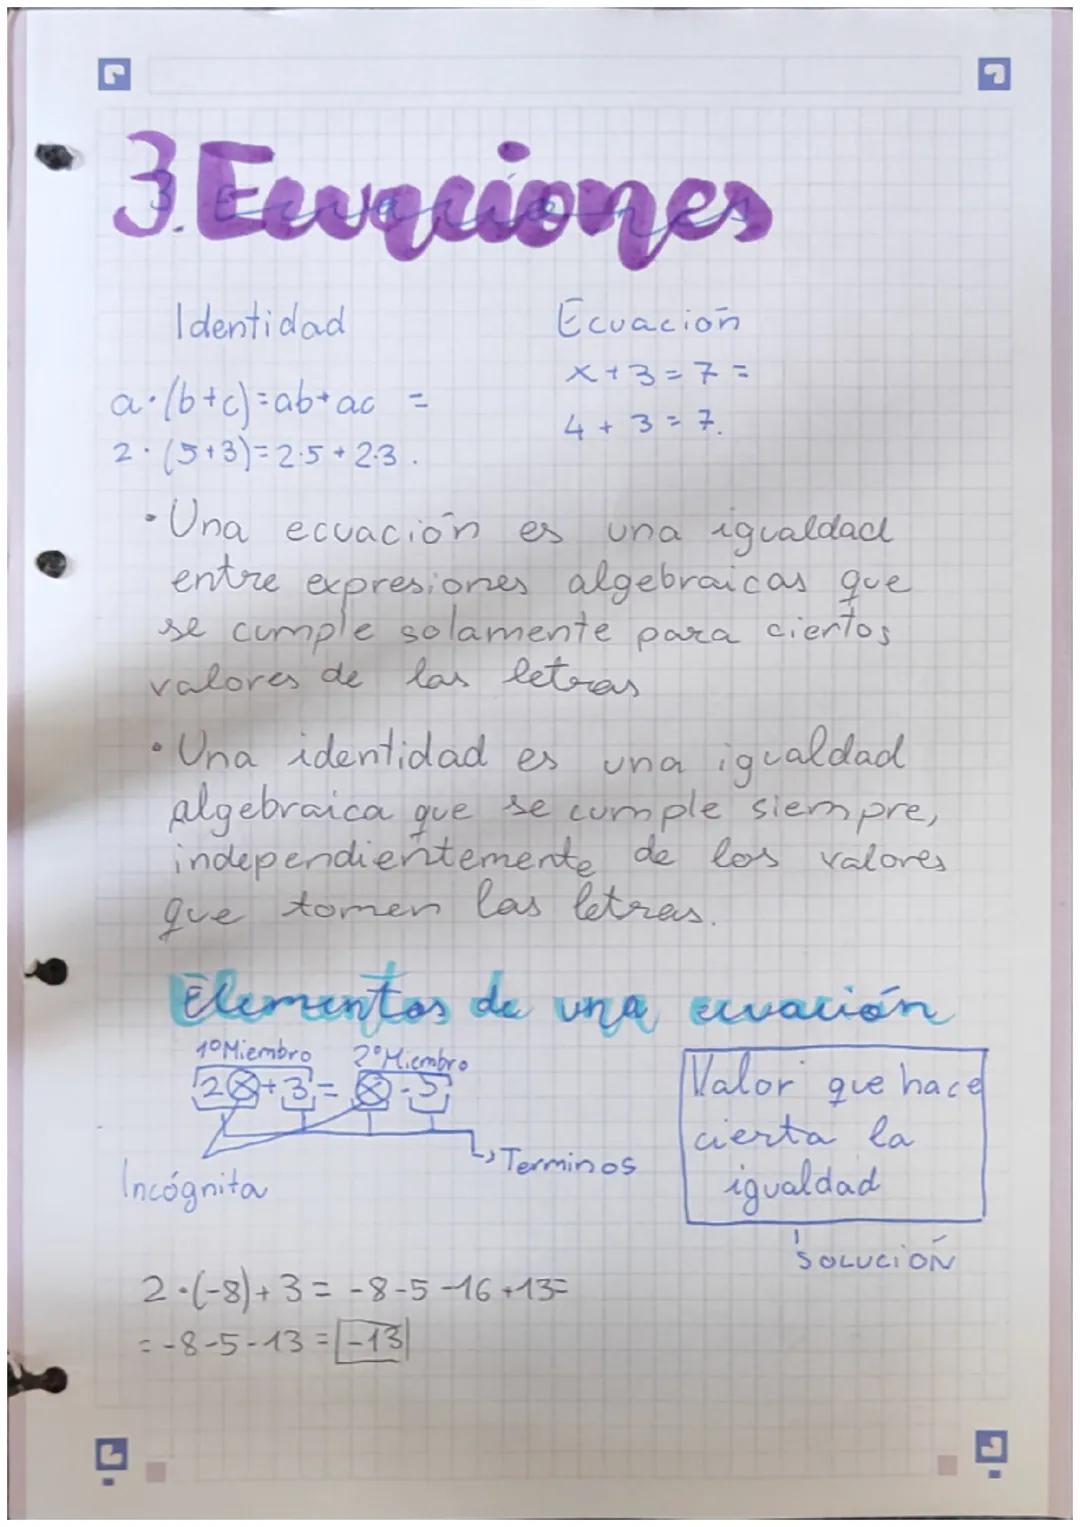 3. Ecuaciones
Identidad
a·(b+c)=ab+ac =
2·(5+3)=2·5+2·3.
Ecuación
x+3=7 =
4+3=7.
· Una ecuación es una igualdad
entre expresiones algebraicas que
se cumple solamente para ciertos
valores de las letras
· Una identidad es una igualdad
algebraica que se cumple siempre,
independientemente de los valores
que tomen las letras.
Elementos de una ecuación
1º Miembro 2º Miembro
2x+3=x-5
Terminos
Incógnita
Valor que hace
cierta la
igualdad
SOLUCIÓN
2·(-8)+3= -8-5 -16 +13=
= -8-5-13 = -13